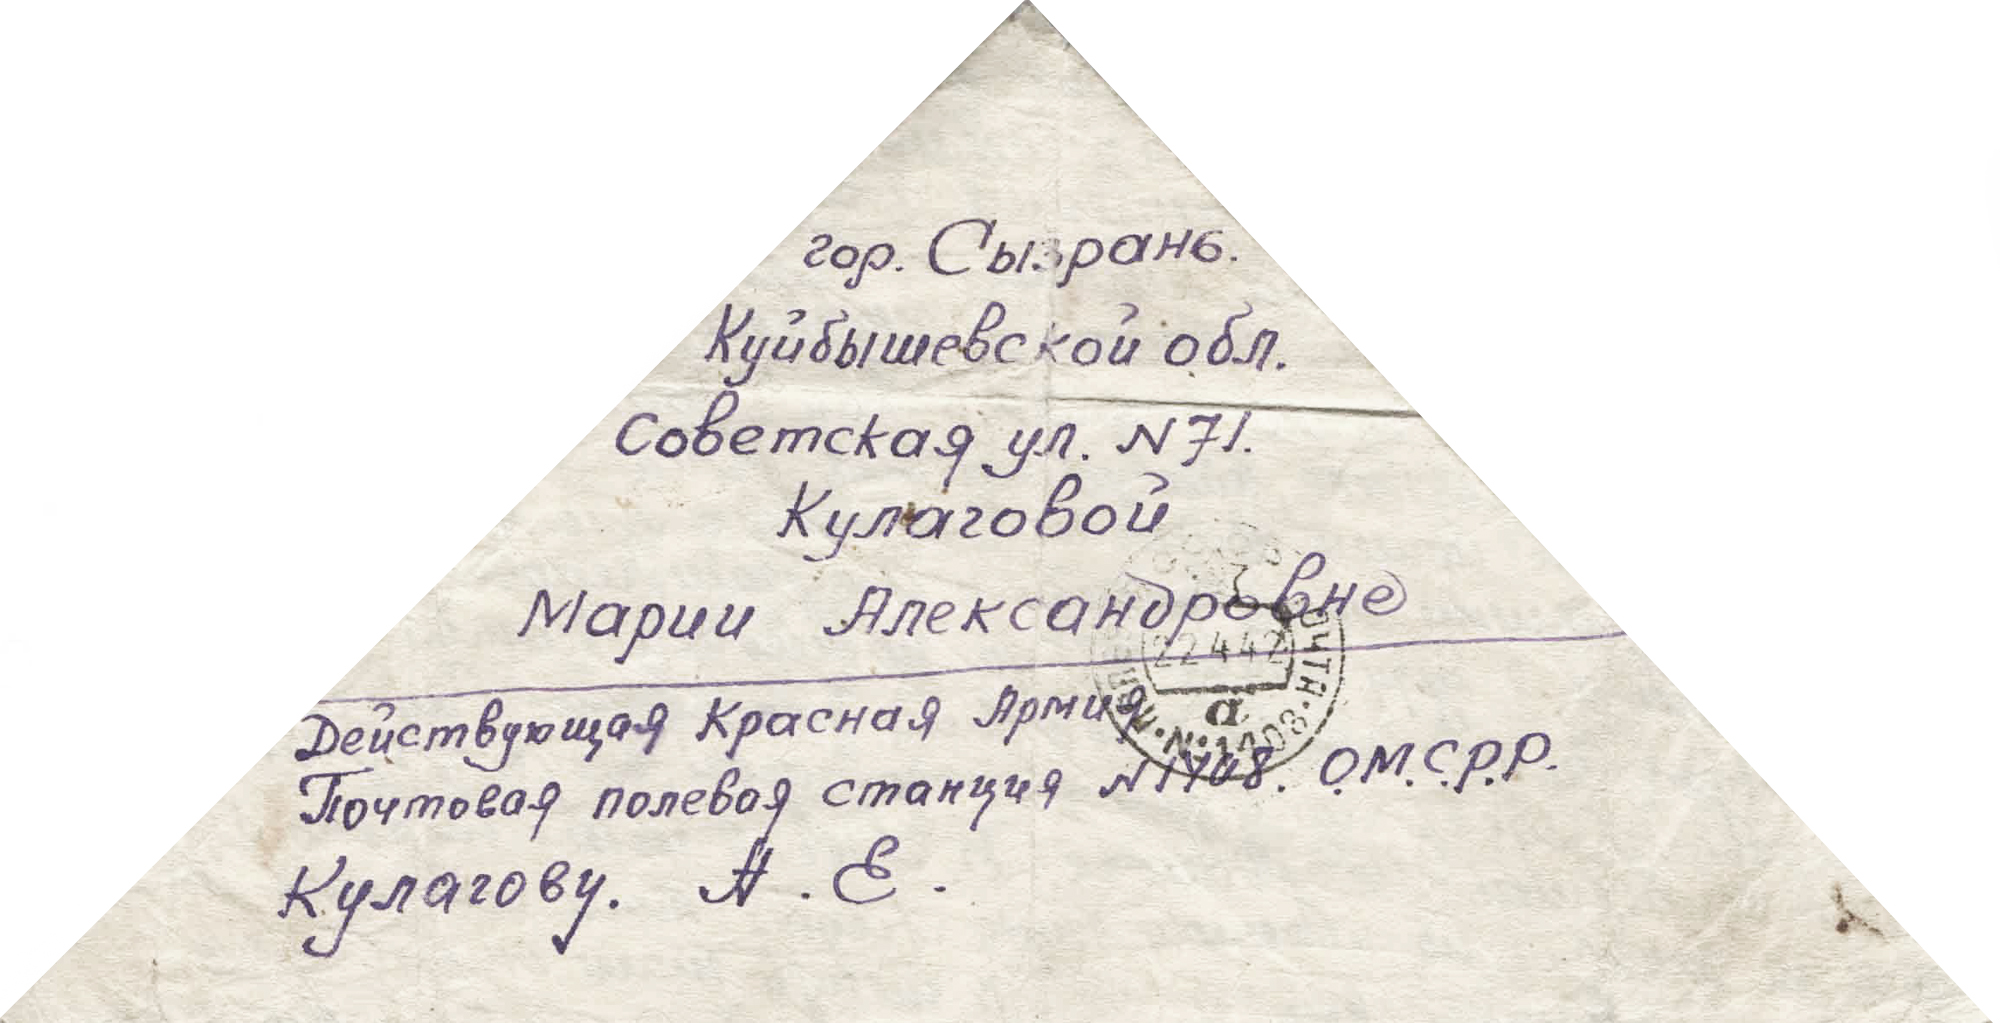 гор. Сызрань.
Куйбышевской обл.
Советская ул. N 71.
Кулаговой
Марии Александровне
22 4 42
а
Действующая Красная Армия
Почтовая полевая станция N 1408. О.М.С.Р.Р.
Кулагову. А. Е.